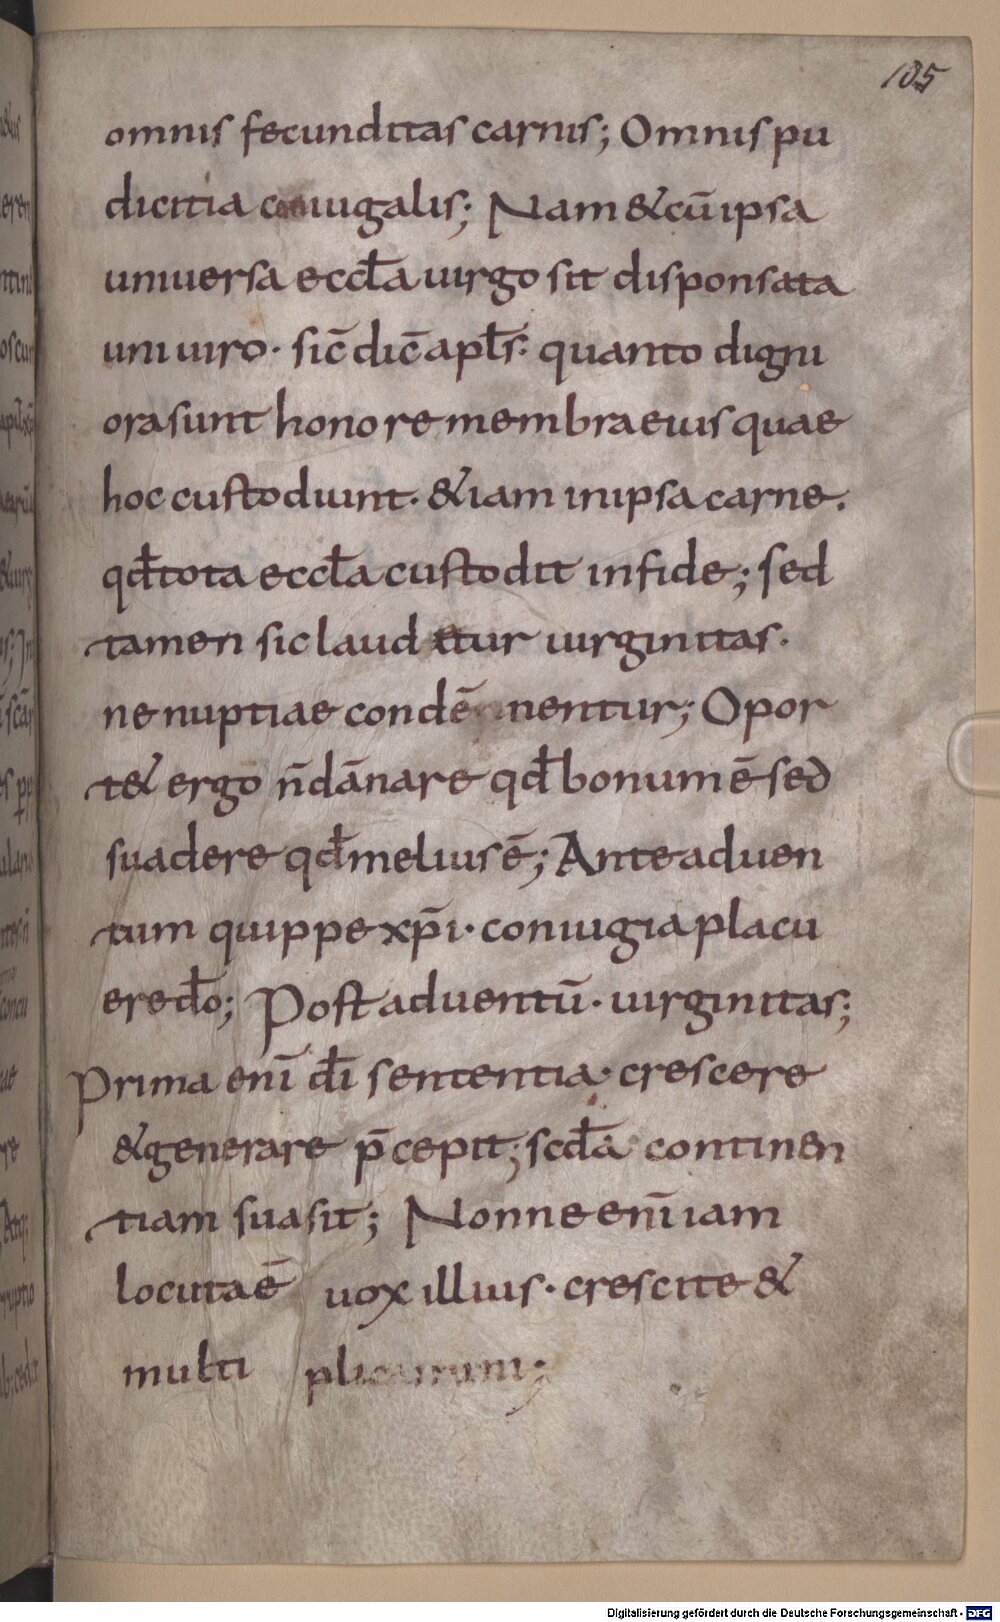 105
omnis fecunditas carnis; Omnis pu
dicitia coniugalis; Nam & cū ipsa
uniuersa eccl̄a uirgo sit disponsata
uni uiro · sic̄ dic̄ apl̄s · quanto digni
ora sunt honore membra eius quae
hoc custodiunt · & iam in ipsa carne .
qd̄ tota eccl̄a custodit in fide; sed
tamen sic laudetur uirginitas ·
ne nuptiae condēnentur; Opor
t& ergo n̄ dānare qd̄ bonum ē sed
suadere qd̄ melius ē; Ante aduen
tum quippe xp̄i · coniugia placu
ere do̅; Post aduentū · uirginitas;
Prima enī dī sententia · crescere
& generare p̄cepit; scd̄a continen
tiam suasit; Nonne enī iam
locuta ē uox illius · crescite &
multi
Digitalisierung gefördert durch die Deutsche Forschungsgemeinschaft - DFG